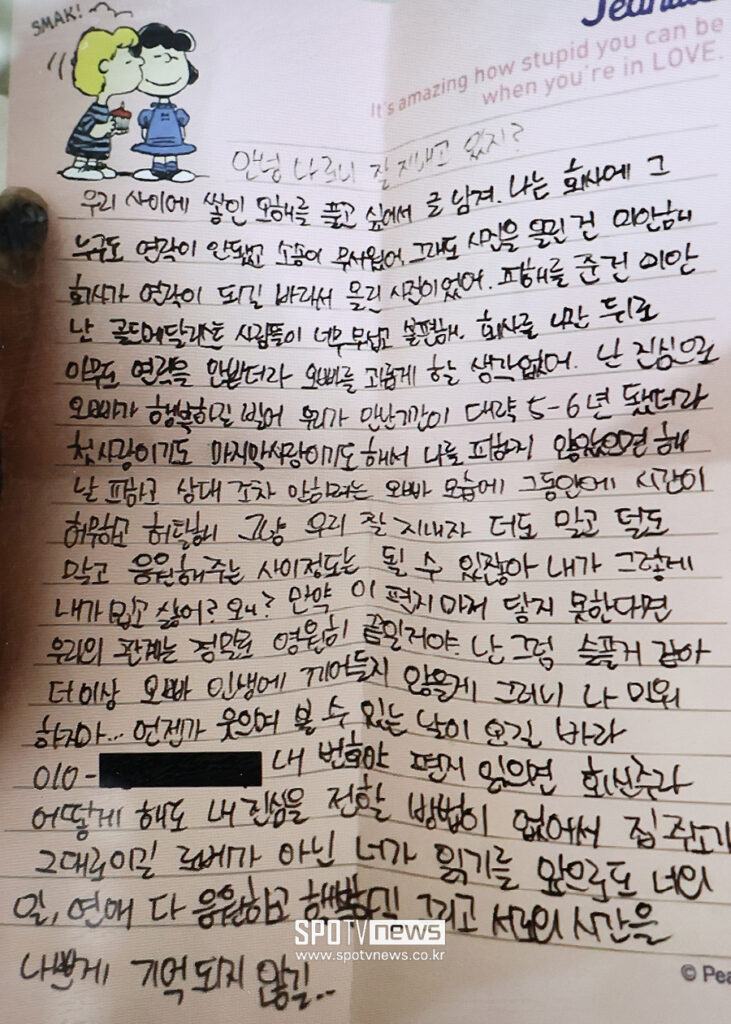 SMAK!
It's amazing how stupid you can be
when you're in LOVE.
안녕 나 잘 지내고 있지?
우리 사이에 쌓인 오해를 풀고 싶어서 글 남겨. 나는 회사에 그
누구도 연락이 안됐고 소송이 무서웠어. 그래도 사진을 올린 건 미안해
회사가 연락이 되길 바라서 올린 사진이었어. 피해를 준건 미안
난 골드메달리스트 사람들이 너무 무섭고 불편해. 회사를 나간 뒤로
아무도 연락을 안받더라 오빠를 괴롭게 할 생각없어. 난 진심으로
오빠가 행복하길 빌어 우리가 만난기간이 대략 5-6년 됐더라
첫사랑이기도 마지막사랑이기도 해서 나를 피하지 않았으면 해
날 피하고 상대 조차 안하려는 오빠 모습에 그동안에 시간이
허무하고 허탈해 그냥 우리 잘 지내자 더도 말고 덜도
말고 응원해주는 사이정도는 될 수 있잖아 내가 그렇게
내가 밉고 싫어? 왜? 만약 이 편지마저 닿지 못한다면
우리의 관계는 정말로 영원히 끝일거야. 난 그럼 슬플거 같아
더이상 오빠 인생에 끼어들지 않을게 그러니 나 미워
하지마... 언젠가 웃으며 볼 수 있는 날이 오길 바라
010- 내 번호야 편지 읽으면 회신주라
어떻게 해도 내 진심을 전할 방법이 없어서 집주소가
그대로이길 로베가 아닌 너가 읽기를 앞으로도 너의
일, 연애 다 응원하고 행복하길 그리고 서로의 시간을
나쁘게 기억되지 않길..
SPOTV news
www.spotvnews.co.kr
© Pea